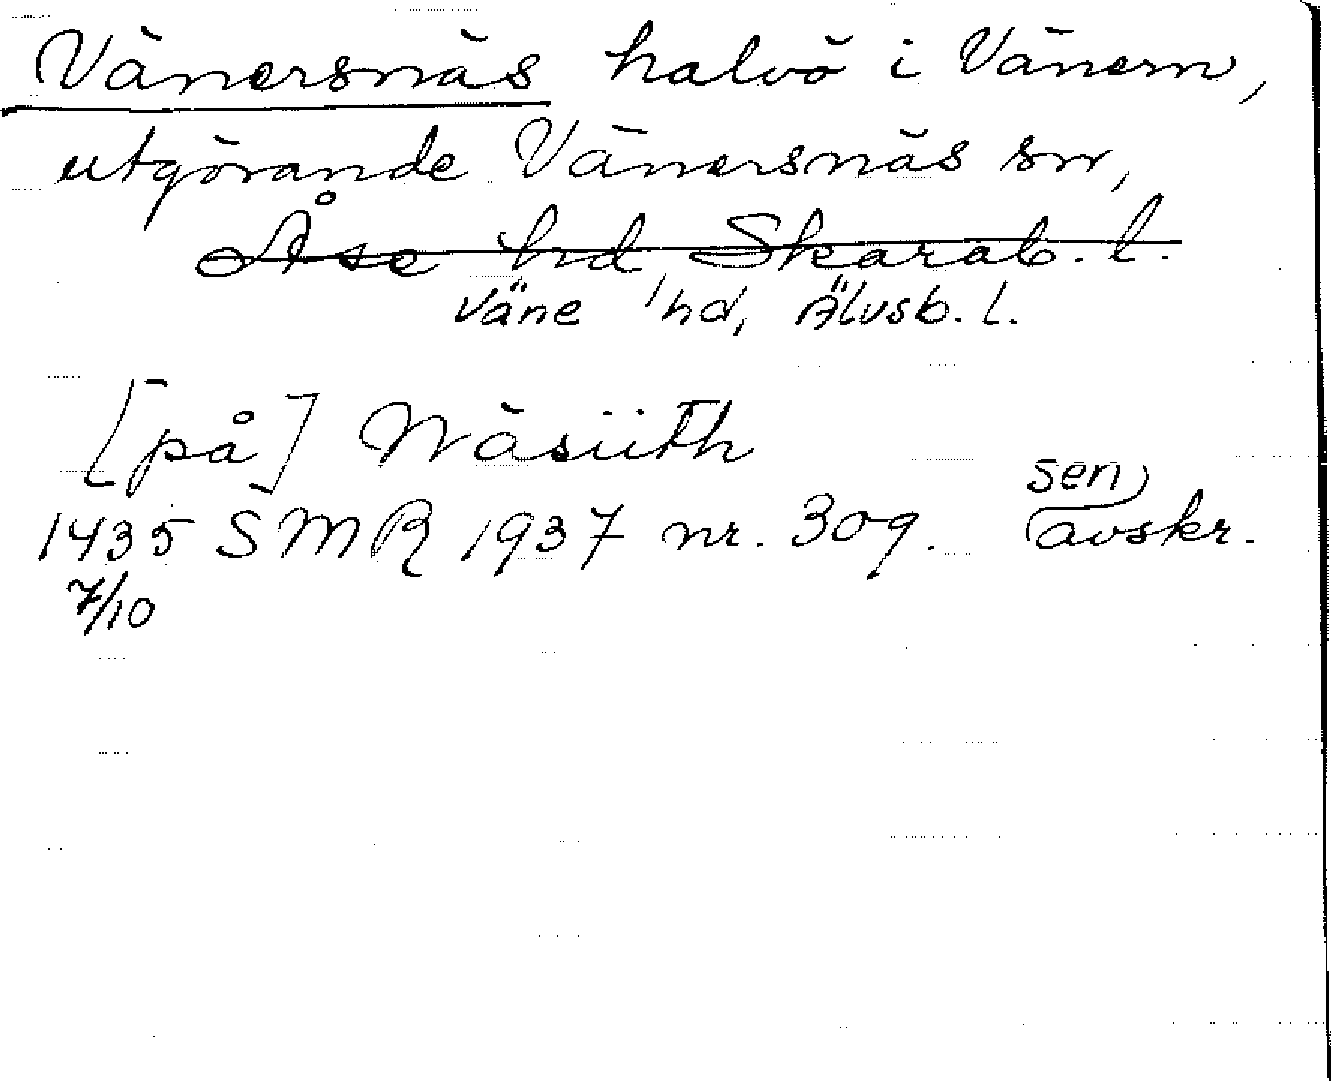 Vänersnäs halvö i Vänern,
utgörande Vänersnäs sn,
Åse hd, Skarab. l.
Väne hd, Älvsb. l.
[på] Wäsiith
sen
1435 SMR 1937 nr. 309. avskr.
7/10